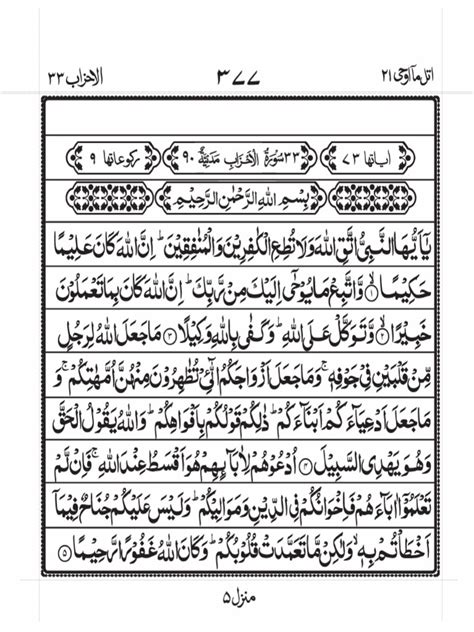 اتل ماۤ اوحی ٢١ ٣٧٧ الاحزاب ٣٣
اٰیاتها ٧٣ ٣٣ سُوْرَةُ الْاَحْزَابِ مَدَنِیَّةٌ ٩٠ رکوعاتها ٩
بِسْمِ اللّٰهِ الرَّحْمٰنِ الرَّحِیْمِ
یٰۤاَیُّهَا النَّبِیُّ اتَّقِ اللّٰهَ وَلَا تُطِعِ الْكٰفِرِیْنَ وَالْمُنٰفِقِیْنَ ؕ اِنَّ اللّٰهَ كَانَ عَلِیْمًا
حَكِیْمًا ۙ﴿١﴾ وَّاتَّبِعْ مَا یُوْحٰۤی اِلَیْكَ مِنْ رَّبِّكَ ؕ اِنَّ اللّٰهَ كَانَ بِمَا تَعْمَلُوْنَ
خَبِیْرًا ۙ﴿٢﴾ وَّتَوَكَّلْ عَلَی اللّٰهِ ؕ وَكَفٰی بِاللّٰهِ وَكِیْلًا ﴿٣﴾ مَا جَعَلَ اللّٰهُ لِرَجُلٍ
مِّنْ قَلْبَیْنِ فِیْ جَوْفِهٖ ۚ وَمَا جَعَلَ اَزْوَاجَكُمُ الّٰٓـِٔیْ تُظٰهِرُوْنَ مِنْهُنَّ اُمَّهٰتِكُمْ ۚ وَ
مَا جَعَلَ اَدْعِیَآءَكُمْ اَبْنَآءَكُمْ ؕ ذٰلِكُمْ قَوْلُكُمْ بِاَفْوَاهِكُمْ ؕ وَاللّٰهُ یَقُوْلُ الْحَقَّ
وَهُوَ یَهْدِی السَّبِیْلَ ﴿٤﴾ اُدْعُوْهُمْ لِاٰبَآىِٕهِمْ هُوَ اَقْسَطُ عِنْدَ اللّٰهِ ۚ فَاِنْ لَّمْ
تَعْلَمُوْۤا اٰبَآءَهُمْ فَاِخْوَانُكُمْ فِی الدِّیْنِ وَمَوَالِیْكُمْ ؕ وَلَیْسَ عَلَیْكُمْ جُنَاحٌ فِیْمَاۤ
اَخْطَاْتُمْ بِهٖ ۙ وَلٰكِنْ مَّا تَعَمَّدَتْ قُلُوْبُكُمْ ؕ وَكَانَ اللّٰهُ غَفُوْرًا رَّحِیْمًا ﴿٥﴾
منزل ٥